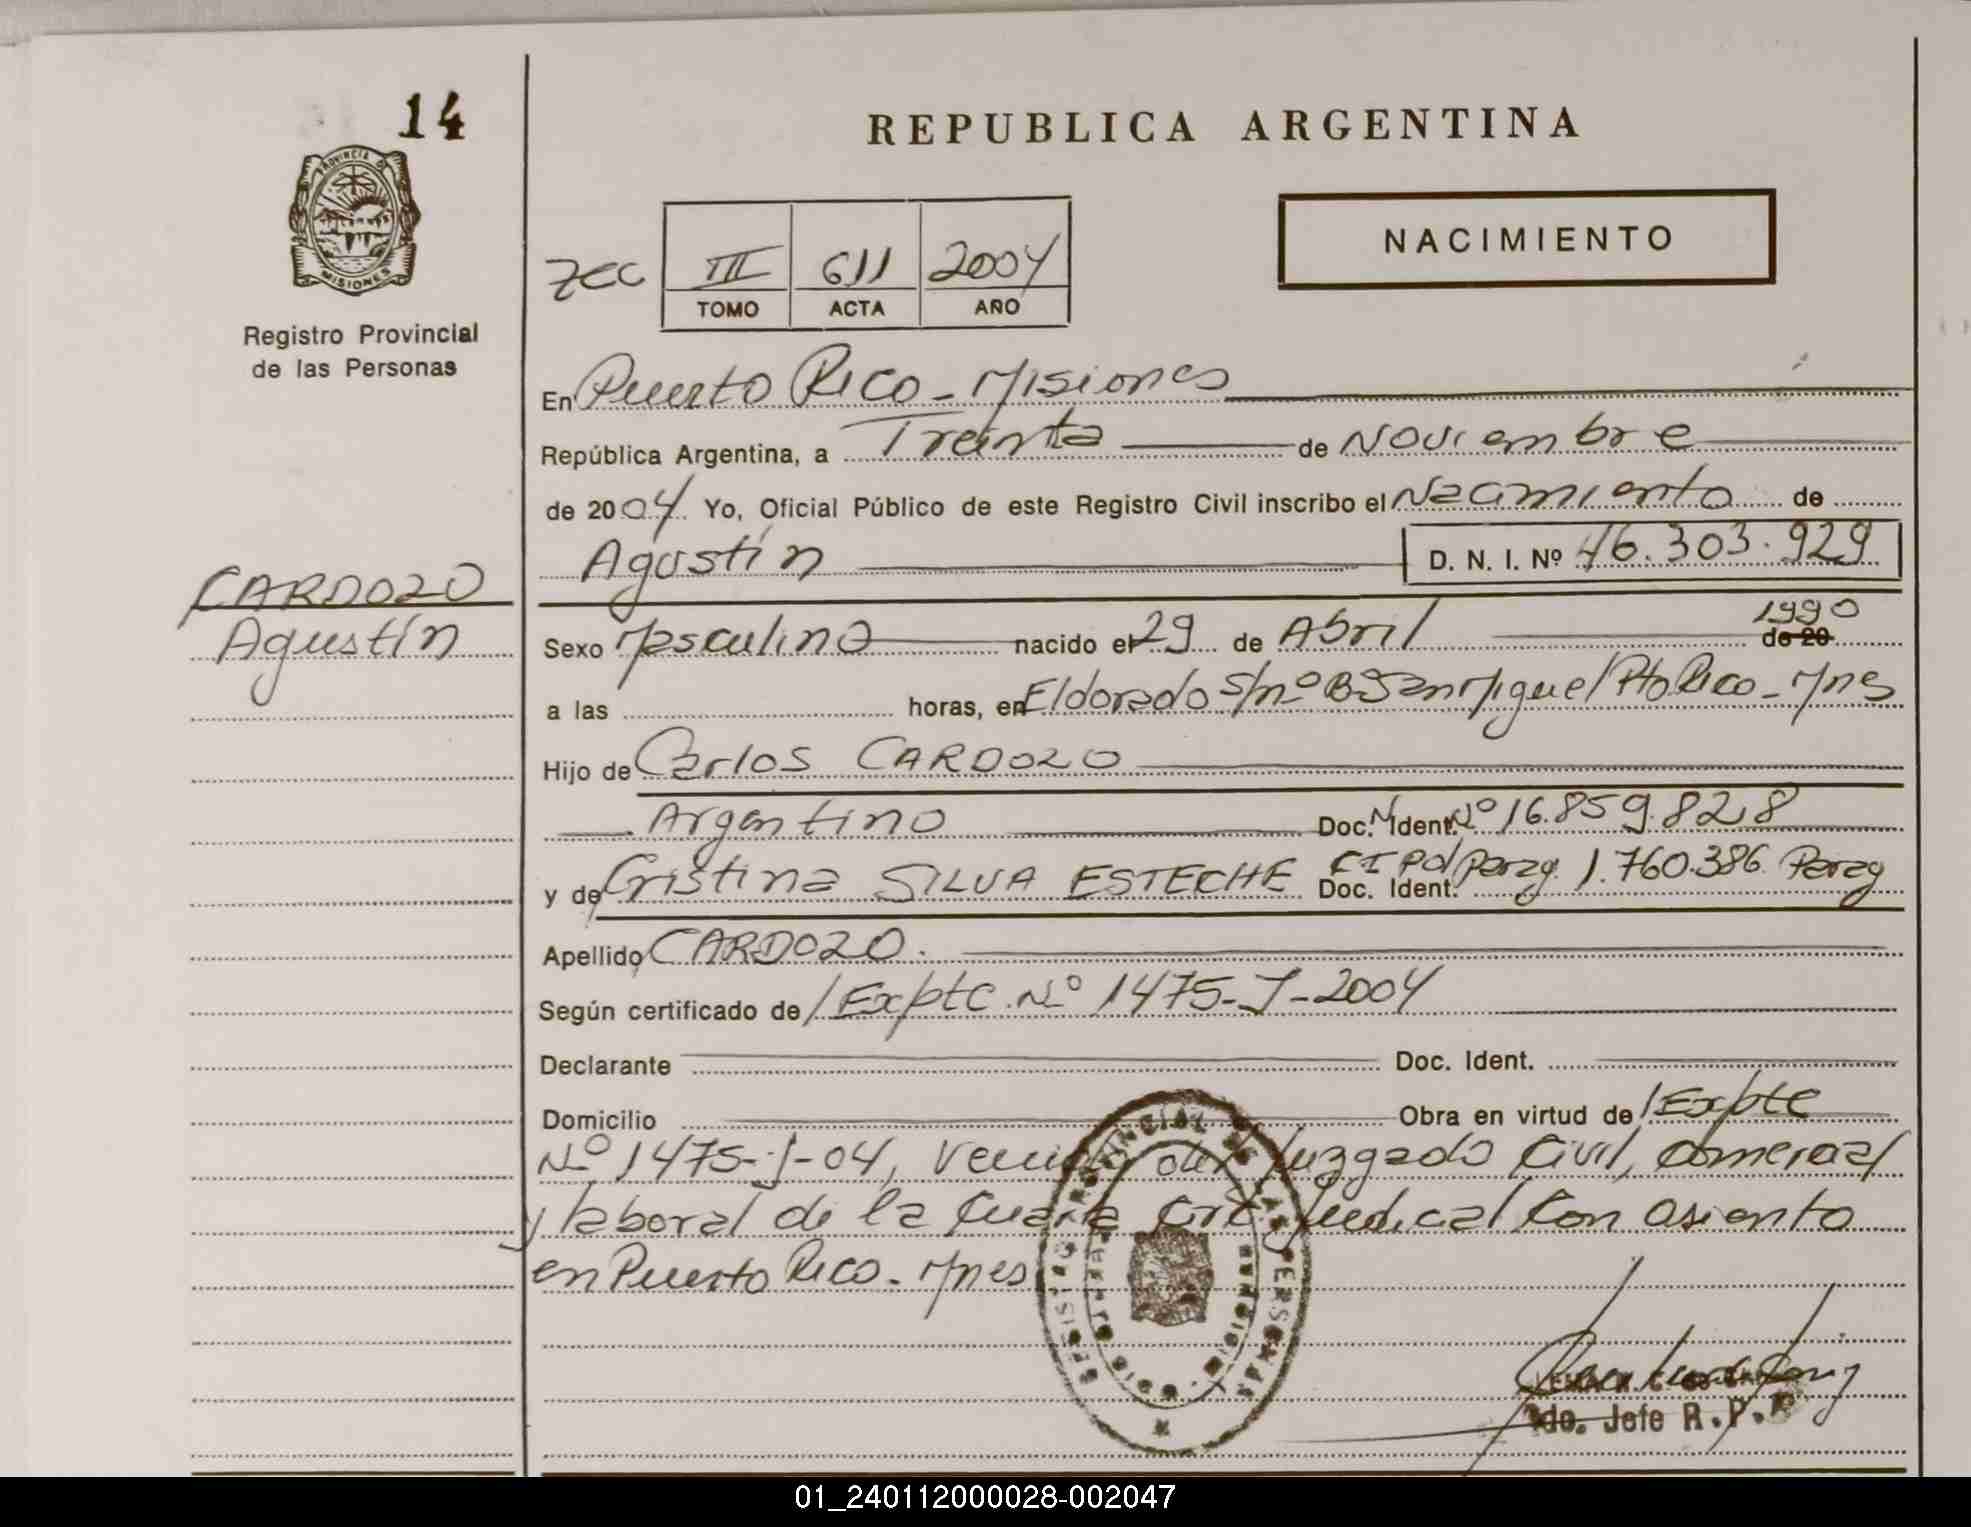 14
PROVINCIA D
MISIONES
Registro Provincial
de las Personas
REPUBLICA ARGENTINA
NACIMIENTO
III 611 2004
TOMO ACTA AÑO
En Puerto Rico - Misiones
República Argentina, a Treinta de Noviembre
de 2004 Yo, Oficial Público de este Registro Civil inscribo el Nacimiento de
Agustín D. N. I. Nº 46.303.929
CARDOZO
Agustín
1990
Sexo Masculino nacido el 29 de Abril de 20
a las horas, en Eldorado S/nº Bº San Miguel Pto Rico - Mnes
Hijo de Carlos CARDOZO
Argentino Doc. Ident. Nº 16.859.828
y de Cristina SILVA ESTECHE Doc. Ident. CI Pol Parag. 1.760.386 Parag
Apellido CARDOZO.
Según certificado de / Expte. Nº 1475-J-2004
Declarante Doc. Ident.
Domicilio Obra en virtud de / Expte
Nº 1475-J-04, del Juzgado Civil, Comercial
y laboral de la Cuarta Circ Judicial con asiento
en Puerto Rico - Mnes
REGISTRO PROVINCIAL DE LAS PERSONAS
MISIONES
Jefe R.P.P
01_240112000028-002047